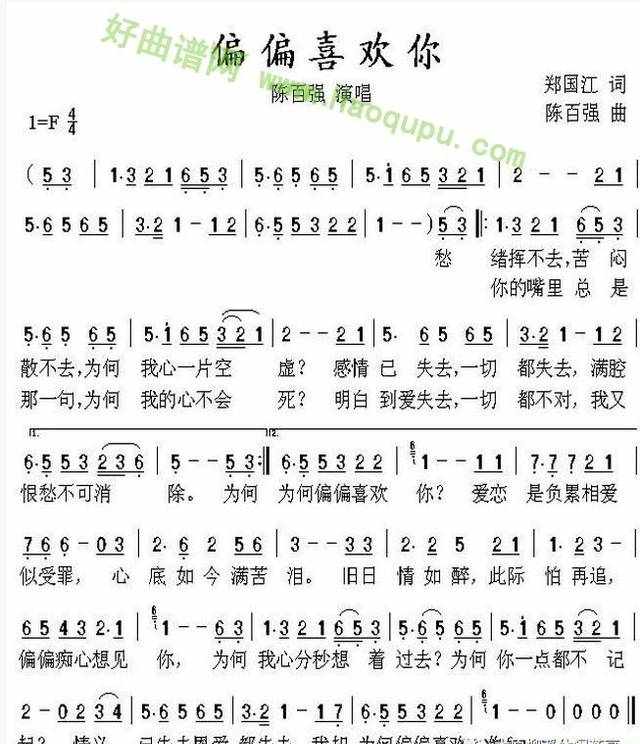 偏偏喜欢你
好曲谱网
www.haoqupu.com
陈百强 演唱
郑国江 词
陈百强 曲
1=F 4/4
(5 3 | 1·3 2 1 6 5 3 | 5·6 5 5·6 5 | 5·1 6 5 3 2 1 | 2 - - 2 1 |
5·6 5 6 5 | 3·2 1 - 1 2 | 6·5 5 3 2 2 | 1 - - ) 5 3 |: 1·3 2 1 6 5 3 |
愁 绪挥不去,苦闷
你的嘴里总是
5·6 5 6 5 | 5·1 6 5 3 2 1 | 2 - - 2 1 | 5· 6 5 6 5 | 3·2 1 - 1 2 |
散不去,为何 我心一片空 虚? 感情已 失去,一切 都失去,满腔
那一句,为何 我的心不会 死? 明白到爱失去,一切 都不对,我又
1. 2.
6·5 5 3 2 3 6 | 5 - - 5 3 :| 6·5 5 3 2 2 | 6 1 - - 1 1 | 7·7 7 2 1 |
恨愁不可消 除。 为何 为何偏偏喜欢 你? 爱恋 是负累相爱
7 6 6 - 0 3 | 2· 6 2 5 6 | 3 - - 3 3 | 2· 2 5 2 1 | 1 6 6 0 1 |
似受罪, 心 底如今满苦 泪。 旧日 情如醉,此际 怕再追,
6 5 4 3 2 3 | 5 - - 6 3 | 1·3 2 1 6 5 3 | 5·6 5 6 5 | 5·1 6 5 3 2 1 |
偏偏痴心想见 你, 为何 我心分秒想着 过去?为何 你一点都不 记
2 - 0 2 3 4 | 5·6 5 6 5 | 3·2 1 - 1 2 | 6·5 5 3 2 2 | 6 1 - - 0 | 0 0 0 0 ‖